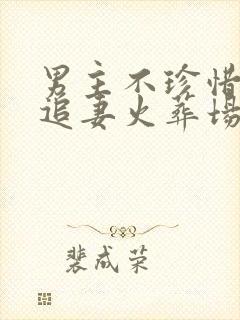 男主不珍惜
追妻火葬场
裴成荣